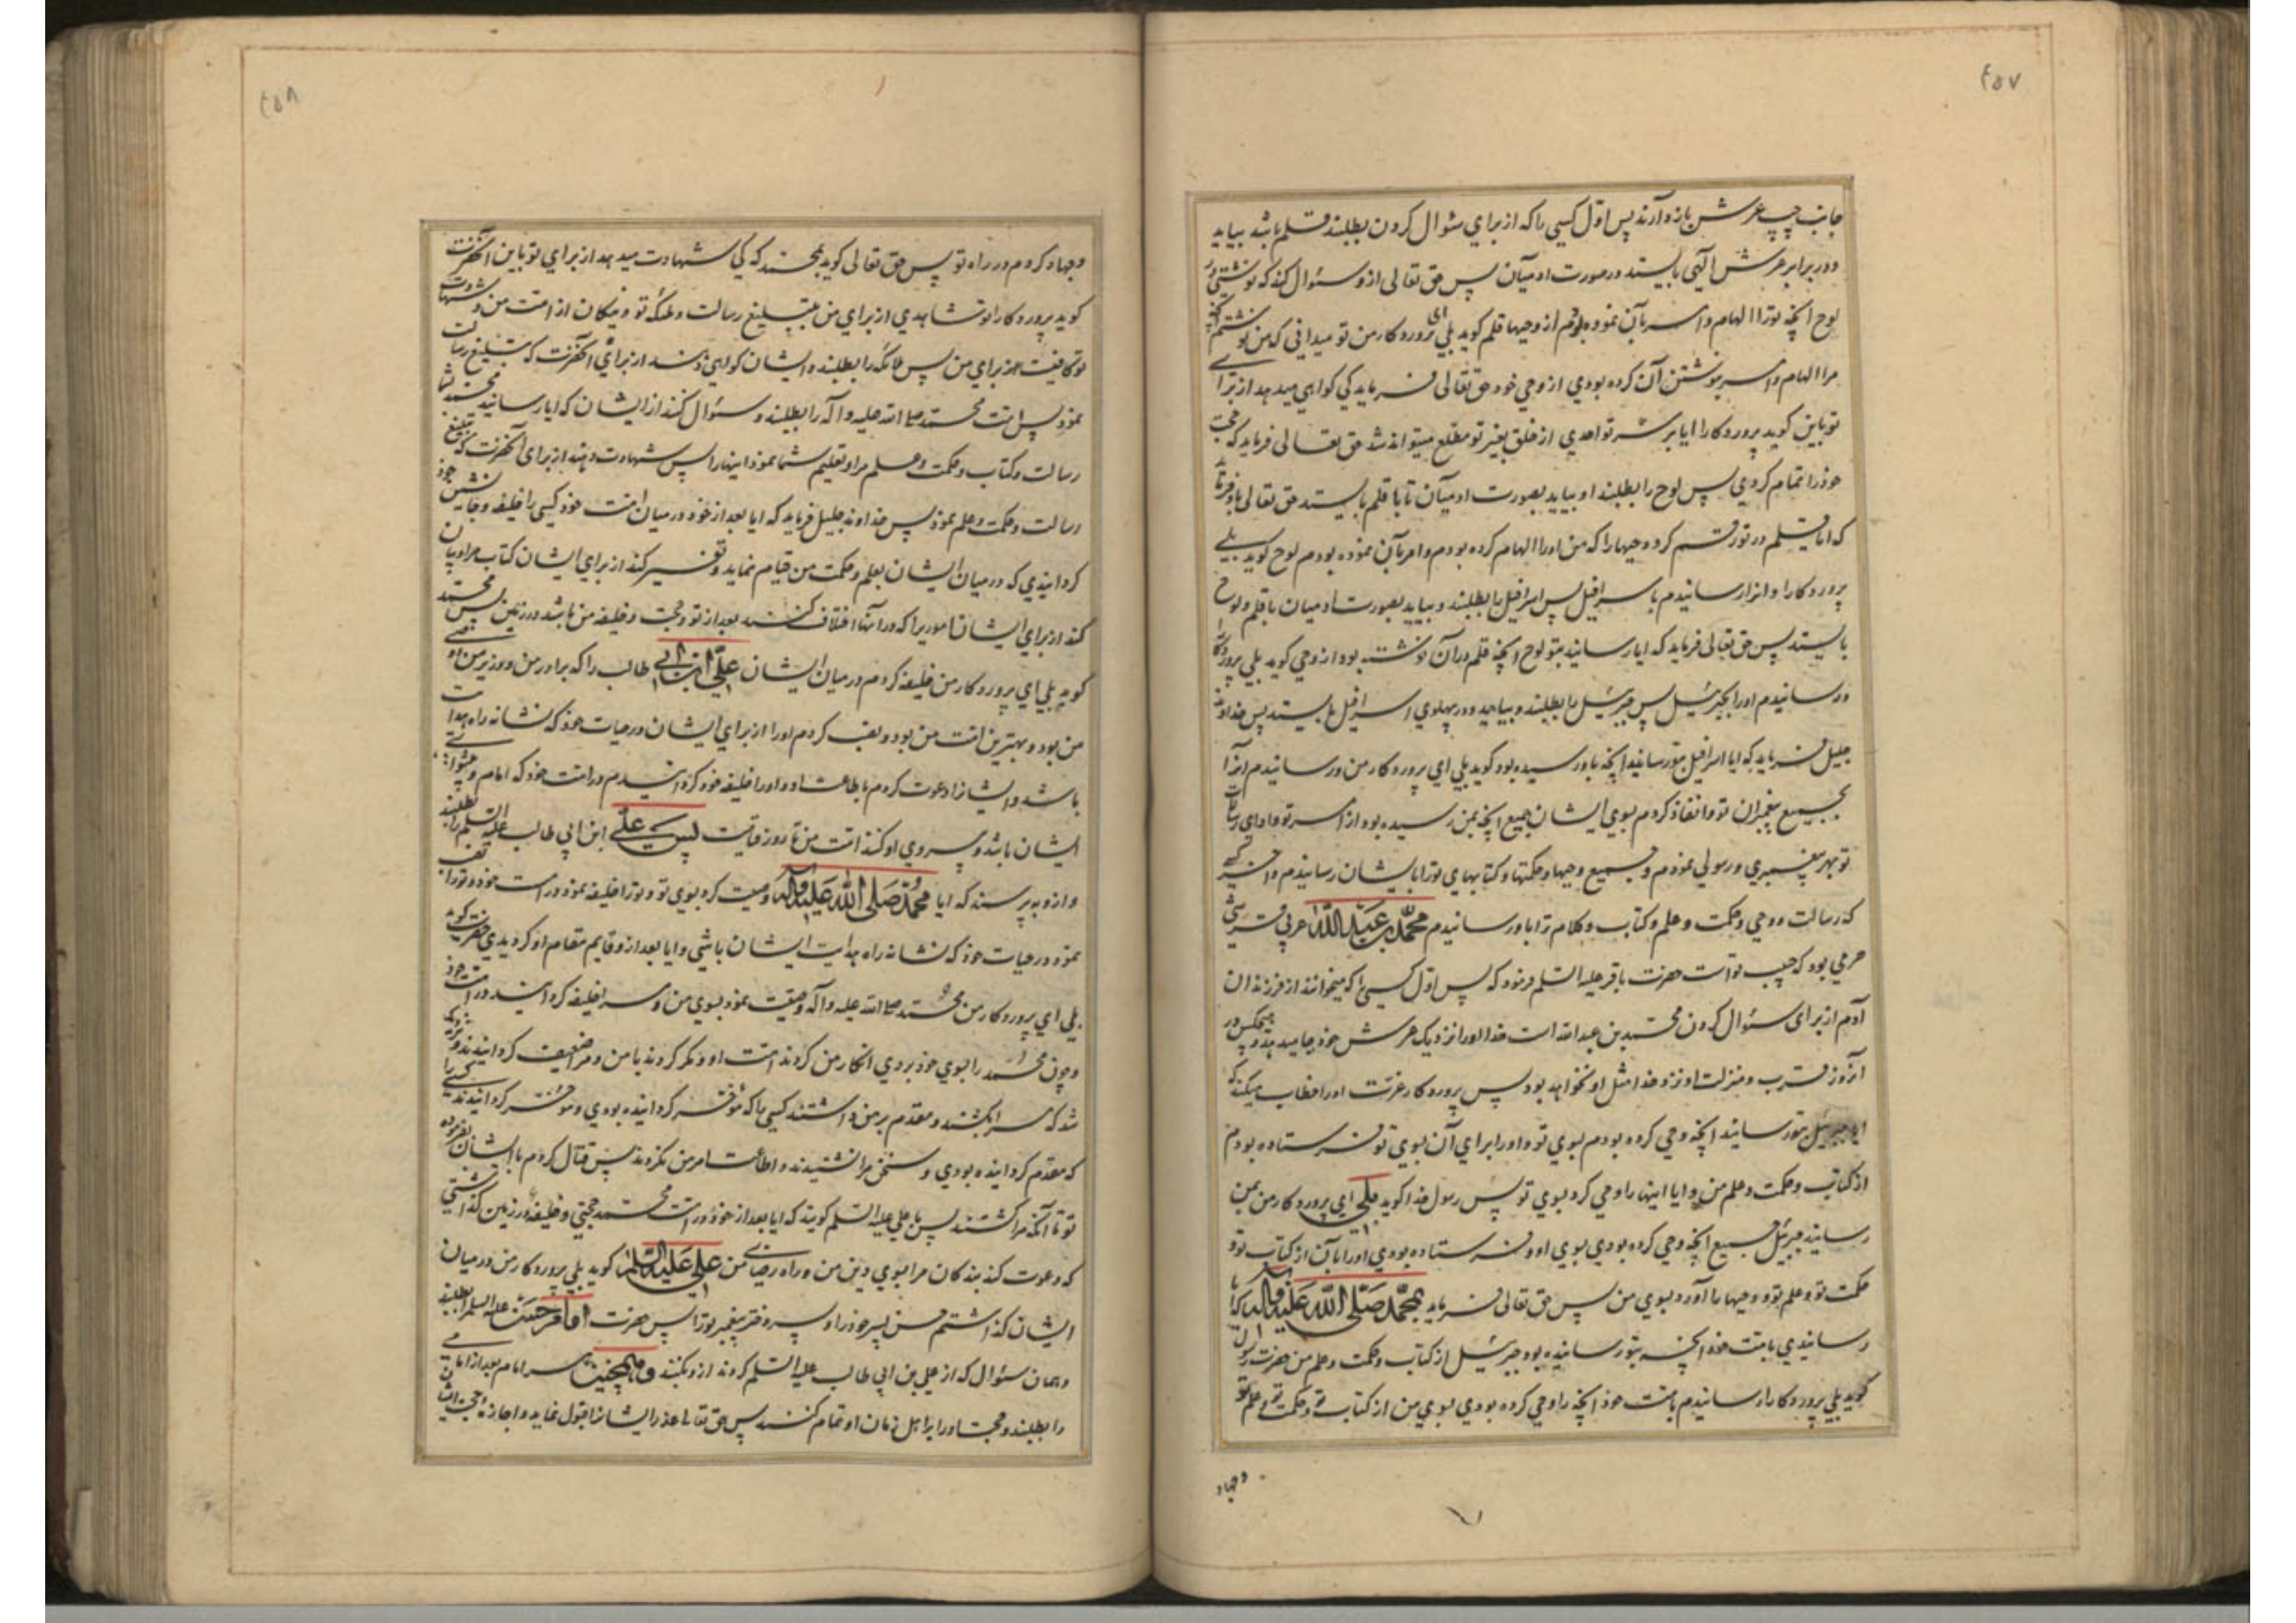 ٤٥٧
جانب چپ عرش باز دارند پس اول کسی را که از برای سئوال کردن بطلبند قلم باشد بیاید
و در برابر عرش الهی بایستد در صورت ادمیان پس حق تعالی از و سئوال کند که نوشتی در
لوح انچه ترا الهام و امر بآن نموده بودم از وحیها قلم کوید بلی ای پروردکار من تو میدانی که من نوشتم انچه
مرا الهام و امر بنوشتن آن کرده بودی از وحی خود حق تعالی فرماید کی کواهی میدهد از برای
تو باین کوید پروردکارا ایا بر سر تو احدی از خلق بغیر تو مطلع میتواند شد حق تعالی فرماید که حجت
خود را تمام کردی پس لوح را بطلبند او بیاید بصورت ادمیان تا با قلم بایستد حق تعالی باو فرماید
که ایا قلم در تو رقم کرد وحیها را که من او را الهام کرده بودم و امر بآن نموده بودم لوح کوید بلی
پروردکارا و انرا رسانیدم باسرافیل پس اسرافیل را بطلبند و بیاید بصورت ادمیان با قلم و لوح
بایستد پس حق تعالی فرماید که ایا رسانید بتو لوح انچه قلم در آن نوشته بود از وحی کوید بلی پروردکارا
و رسانیدم او را بجبرئیل پس جبرئیل را بطلبند و بیاید و در پهلوی اسرافیل بایستد پس خداوند
جلیل فرماید که ایا اسرافیل بتو رسانید انچه باو رسیده بود کوید بلی ای پروردکار من و رسانیدم انرا
بجمیع پیغمبران تو و انفاذ کردم بسوی ایشان جمیع انچه بمن رسیده بود از امر تو و ادای رسالت
تو بهر پیغمبری و رسولی نمودم و جمیع وحیها و حکمتها و کتابهای ترا بایشان رسانیدم و اخر کسی
که رسالت و وحی و حکمت و علم و کتاب و کلام ترا باو رسانیدم محمد بن عبد الله عربی قرشی
حرمی بود که حبیب تو است حضرت باقر علیه السلم فرمود که پس اول کسی را که میخوانند از فرزندان
آدم از برای سئوال کردن محمد بن عبدالله است خدا او را نزدیک عرش خود جا میدهد و هیچکس در
آنروز قرب و منزلت او نزد خدا مثل او نخواهد بود پس پروردکار عزت او را خطاب میکند که
ایا جبرئیل بتو رسانید انچه وحی کرده بودم بسوی تو و او را برای آن بسوی تو فرستاده بودم
از کتاب و حکمت و علم من و ایا اینها را وحی کرد بسوی تو پس رسول خدا کوید بلی ای پروردکار من بمن
رسانید جبرئیل جمیع انچه وحی کرده بودی بسوی او و فرستاده بودی او را بآن از کتاب تو و
حکمت تو و علم تو و وحیها را آورد بسوی من پس حق تعالی فرماید بمحمد صلی الله علیه و اله که ایا
رسانیدی بامت خود انچه بتو رسانیده بود جبرئیل از کتاب و حکمت و علم من حضرت رسول
کوید بلی پروردکارا رسانیدم بامت خود انچه را وحی کرده بودی بسوی من از کتاب تو و حکمت تو و علم تو
و جهاد
٤٥٨
و جهاد کردم در راه تو پس حق تعالی کوید بمحمد که کی شهادت میدهد از برای تو باین آنحضرت
کوید پروردکارا تو شاهدی از برای من بتبلیغ رسالت و ملائکه تو و نیکان از امت من و شهادت
تو کافیست از برای من پس ملائکه را بطلبند و ایشان کواهی دهند از برای آنحضرت که تبلیغ رسالت
نمود پس امت محمد صلی الله علیه و آله را بطلبند و سئوال کند از ایشان که ایا رسانید محمد بشما
رسالت و کتاب و حکمت و علم مرا و تعلیم شما نمود اینها را پس شهادت دهند از برای آنحضرت که تبلیغ
رسالت و حکمت و علم نمود پس خداوند جلیل فرماید که ایا بعد از خود در میان امت خود کسی را خلیفه و جانشین خود
کردانیدی که در میان ایشان بعلم و حکمت من قیام نماید و تفسیر کند از برای ایشان کتاب مرا و بیان
کند از برای ایشان اموریرا که در آنها اختلاف کنند بعد از تو و حجت و خلیفه من باشد در زمین پس محمد
کوید بلی ای پروردکار من خلیفه کردم در میان ایشان علی ابن ابی طالب را که برادر من و وزیر من و وصی
من بود و بهترین امت من بود و نصب کردم او را از برای ایشان در حیات خود که نشانه راه هدایت
باشد و ایشانرا دعوت کردم باطاعت او و او را خلیفه خود کردانیدم در امت خود که امام و پیشوای
ایشان باشد و پیروی او کنند امت من تا روز قیامت پس علی ابن ابی طالب علیه السلم را بطلبند
و از و بپرسند که ایا محمد صلی الله علیه و اله وصیت کرد بسوی تو و ترا خلیفه نمود در امت خود و ترا نصب
نمود در حیات خود که نشانه راه هدایت ایشان باشی و ایا بعد از و قایم مقام او کردیدی حضرت کوید
بلی ای پروردکار من محمد صلی الله علیه و آله وصیت نمود بسوی من و مرا خلیفه کردانید در امت خود
و چون محمد را بسوی خود بردی انکار من کردند امت او و مکر کردند با من و مرا ضعیف کردانیدند و نزدیک
شد که مرا بکشند و مقدم بر من داشتند کسی را که مؤخر کردانیده بودی و مؤخر کردانیدند کسی را
که مقدم کردانیده بودی و سخن مرا نشنیدند و اطاعت امر من نکردند پس قتال کردم با ایشان بفرموده
تو تا آنکه مرا کشتند پس با علی علیه السلم کویند که ایا بعد از خود در امت محمد حجتی و خلیفه در زمین کذاشتی
که دعوت کند بندکان مرا بسوی دین من و راه رضای من علی علیه السلم کوید بلی پروردکار من در میان
ایشان کذاشتم حسن پسر خود را و پسر دختر پیغمبر ترا پس حضرت امام حسن علیه السلم را بطلبند
و همان سئوال که از علی بن ابی طالب علیه السلم کردند از و بکنند و همچنین هر امام بعد از امامی
را بطلبند و حجت او را بر اهل زمان او تمام کنند پس حق تعالی عذر ایشانرا قبول نماید و اجازه حجت ایشان